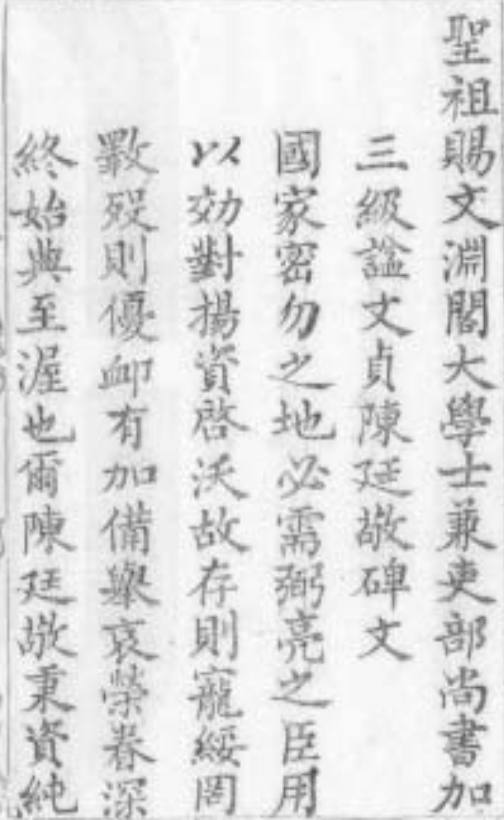 聖祖賜文淵閣大學士兼吏部尚書加
三級諡文貞陳廷敬碑文
國家密勿之地必需弼亮之臣用
以効對揚資啓沃故存則寵綏罔
斁歿則優卹有加備舉哀榮眷深
終始典至渥也爾陳廷敬秉資純